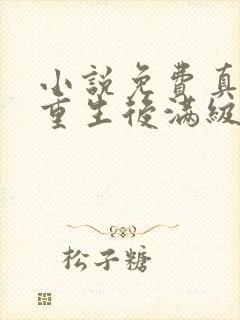 小說免費真
重生後滿級
松子糖